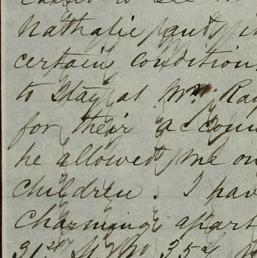 Nathalie and
certain condition
to stay at Mrs. Ray
for their accom
he allowed me on
children. I have
charming apart
31st St. No 35